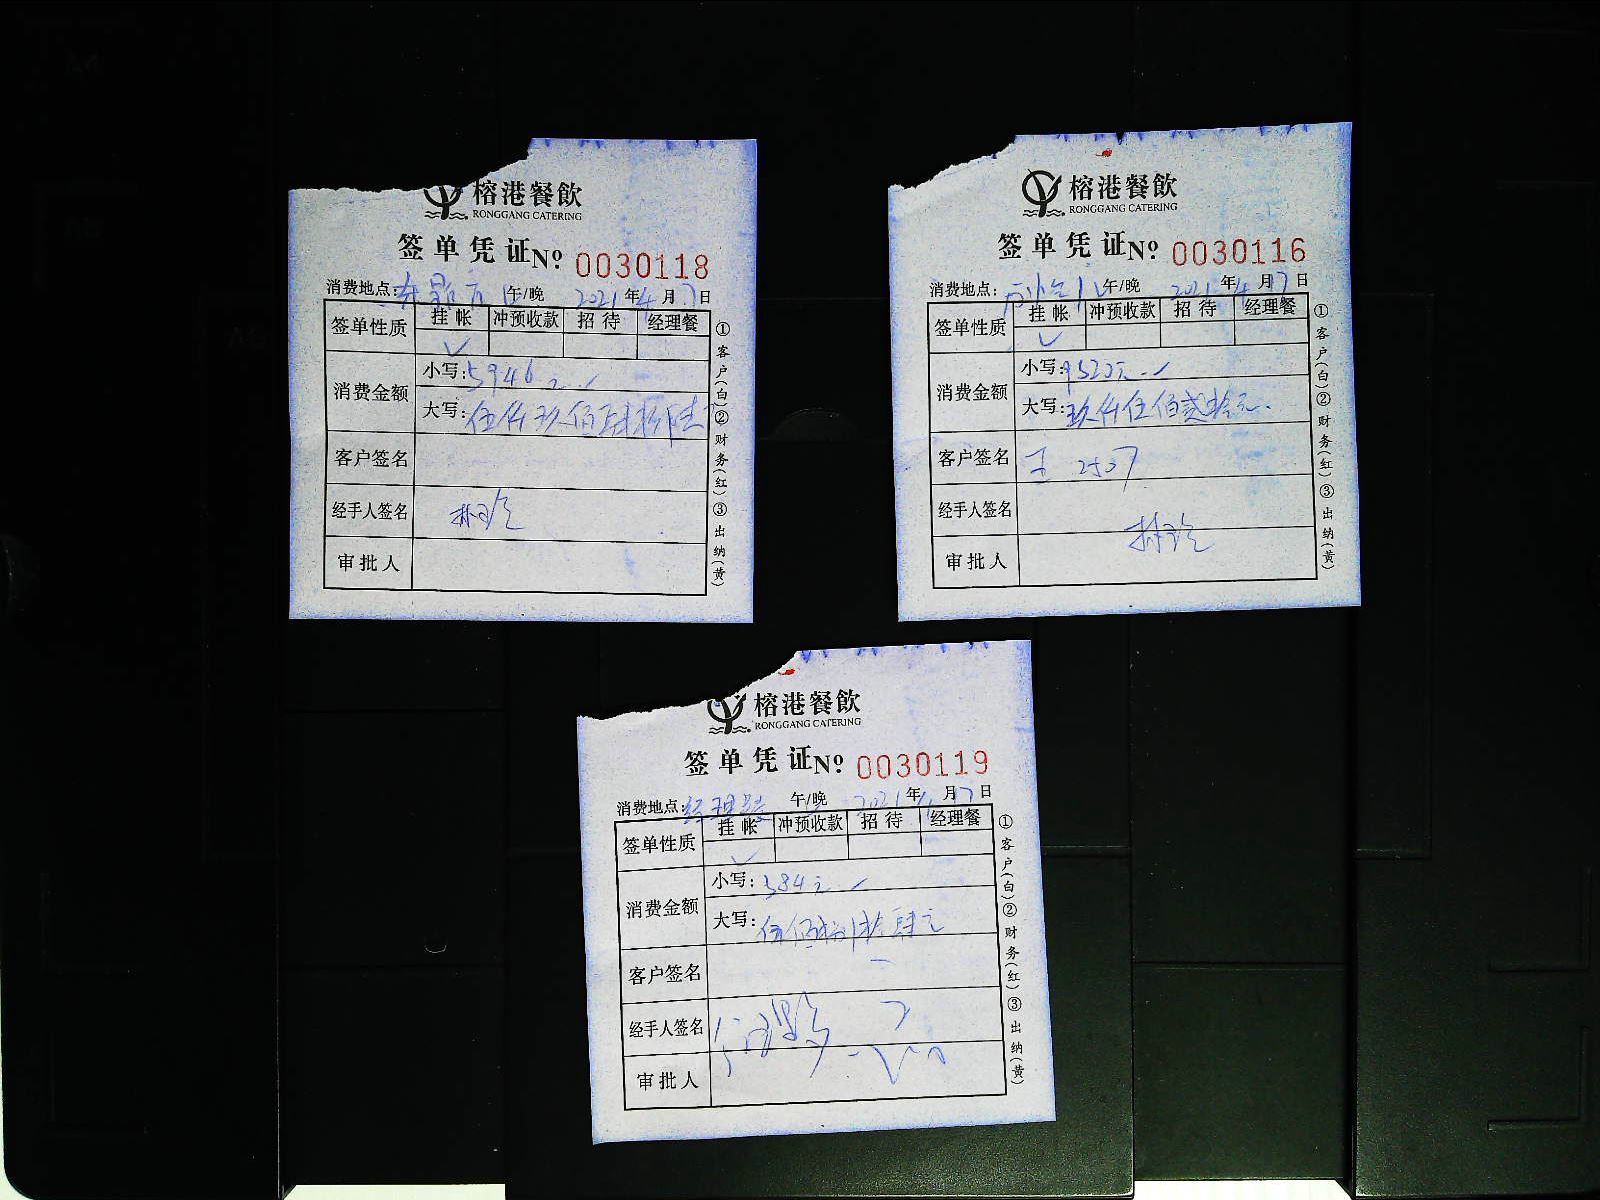 榕港餐飲
RONGGANG CATERING
签单凭证 Nº 0030118
消费地点: 午/晚 2021年4月7日
签单性质 挂帐 冲预收款 招待 经理餐
✓
消费金额 小写: 5946元
大写: 伍仟玖佰肆拾陆
客户签名
经手人签名
审批人
①客户(白)②财务(红)③出纳(黄)
榕港餐飲
RONGGANG CATERING
签单凭证 Nº 0030116
消费地点: 午/晚 2021年4月7日
签单性质 挂帐 冲预收款 招待 经理餐
✓
消费金额 小写: 9520元
大写: 玖仟伍佰贰拾元
客户签名 王
经手人签名
审批人
①客户(白)②财务(红)③出纳(黄)
榕港餐飲
RONGGANG CATERING
签单凭证 Nº 0030119
消费地点: 经理餐 午/晚 2021年4月7日
签单性质 挂帐 冲预收款 招待 经理餐
✓
消费金额 小写: 584元
大写: 伍佰捌拾肆元
客户签名
经手人签名
审批人
①客户(白)②财务(红)③出纳(黄)